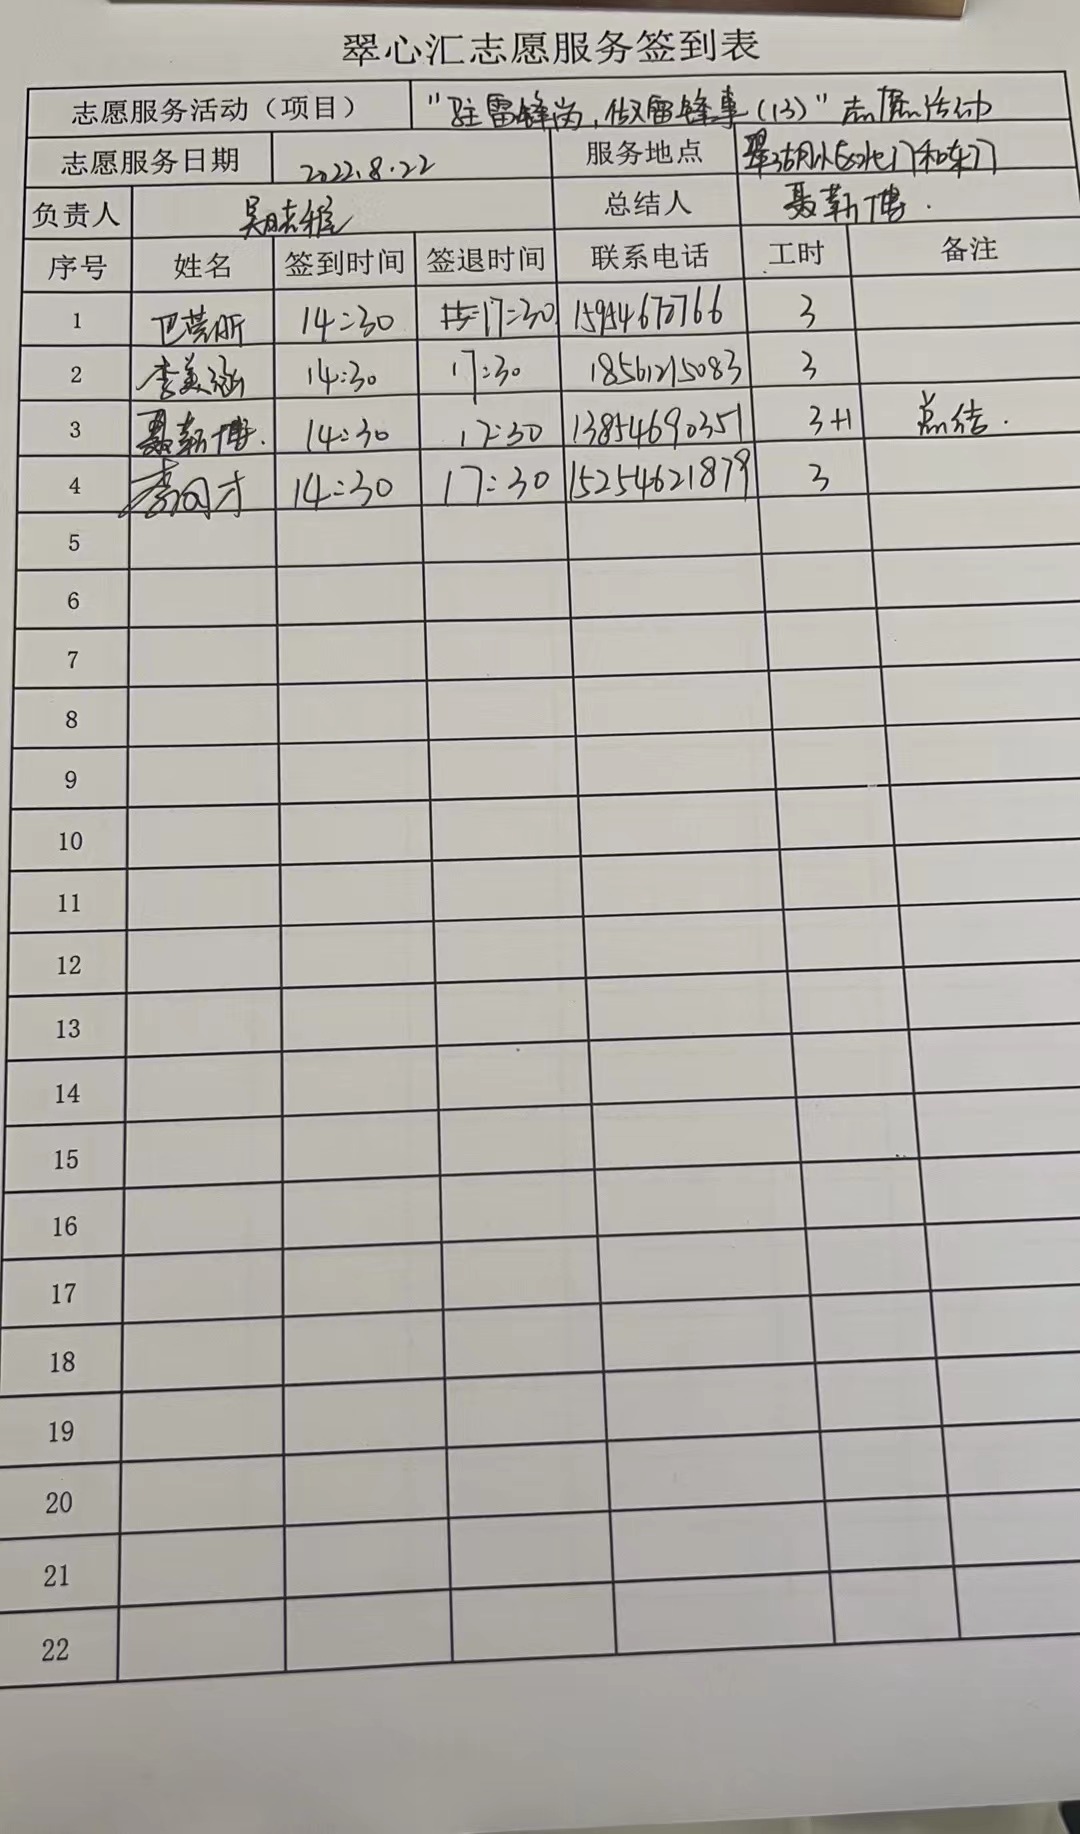 翠心汇志愿服务签到表
志愿服务活动（项目） "驻雷锋岗，做雷锋事（13）"志愿活动
志愿服务日期 2022.8.22 服务地点 翠湖小区北门和东门
负责人 总结人 聂新博.
序号 姓名 签到时间 签退时间 联系电话 工时 备注
1 14:30 17:30 15954670766 3
2 李美涵 14:30 17:30 18561215083 3
3 聂新博. 14:30 17:30 13854690351 3+1 总结.
4 14:30 17:30 15254621879 3
5
6
7
8
9
10
11
12
13
14
15
16
17
18
19
20
21
22